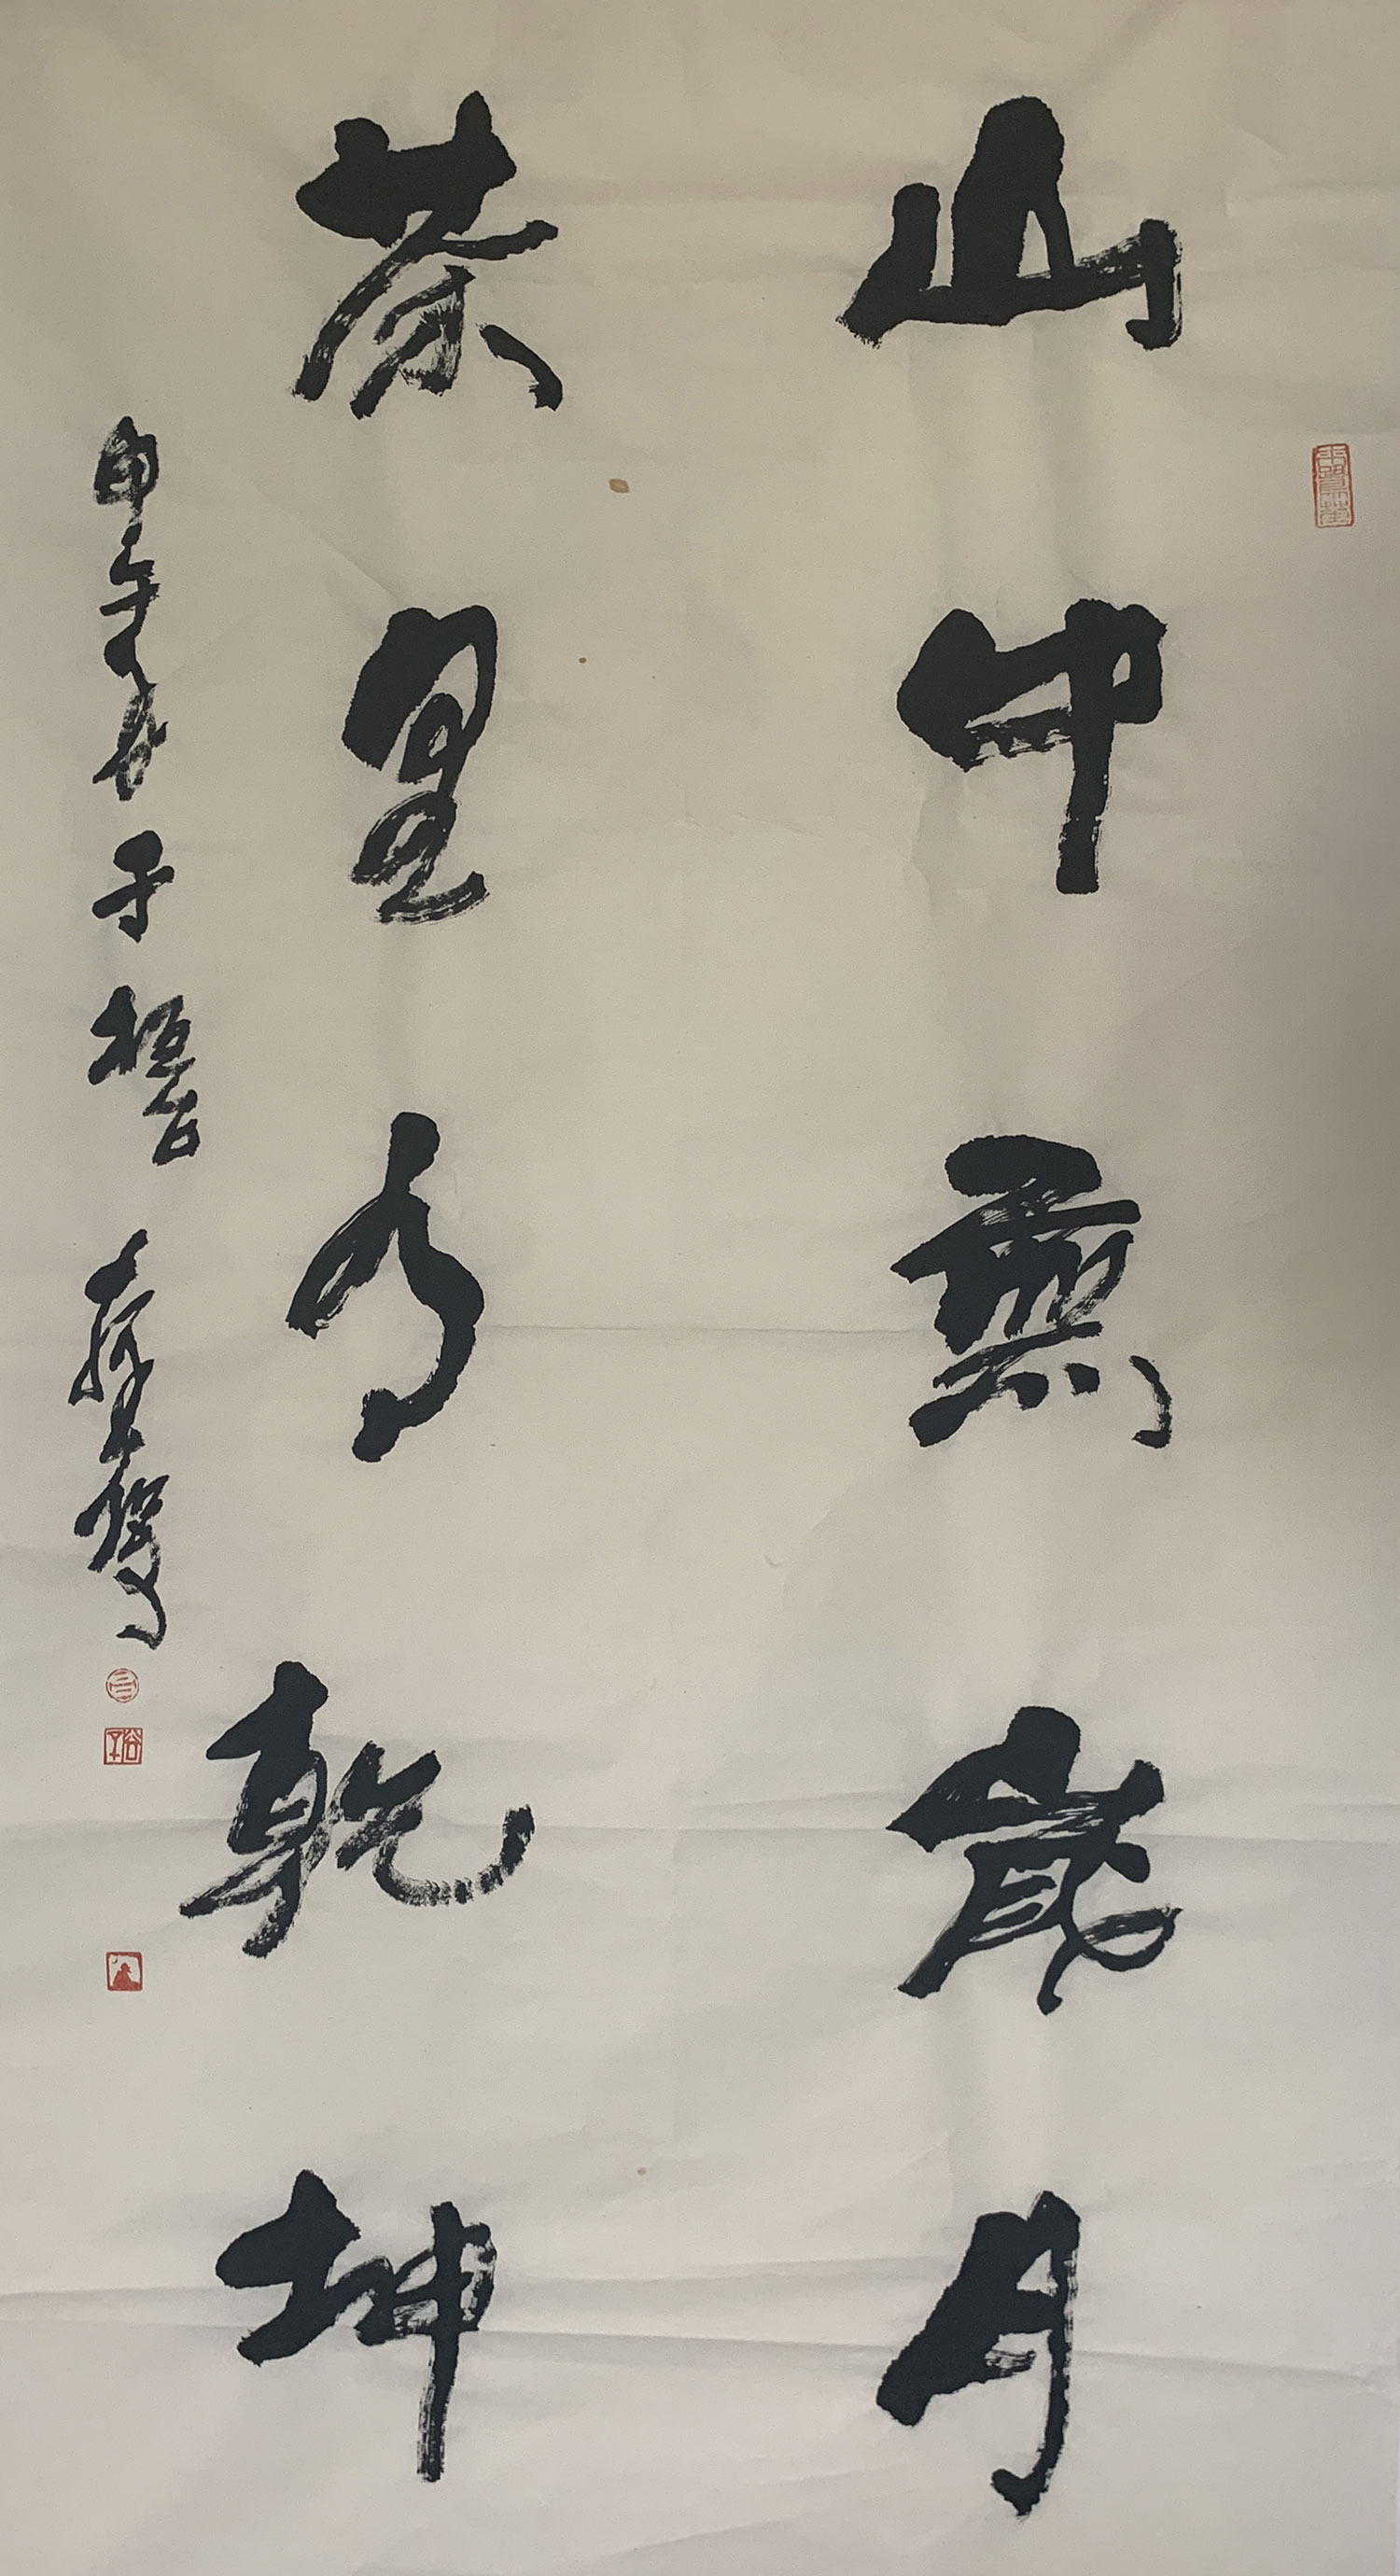 山中無歲月
茶里有乾坤
甲午春于